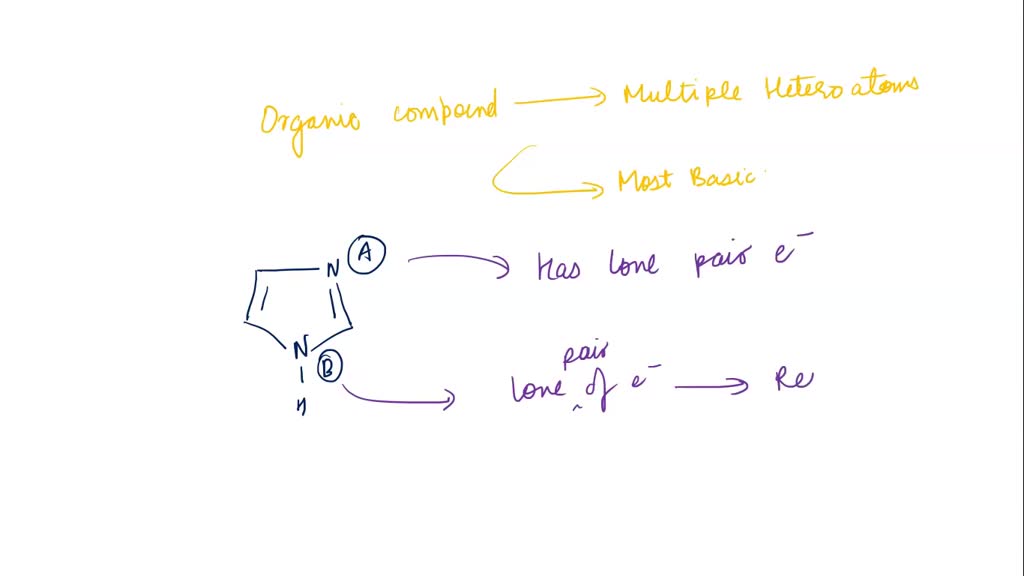 Organic compound → Multiple Heteroatoms
→ Most Basic
N A → Has lone pair e⁻
N B
H
pair
lone ^ of e⁻ → Re